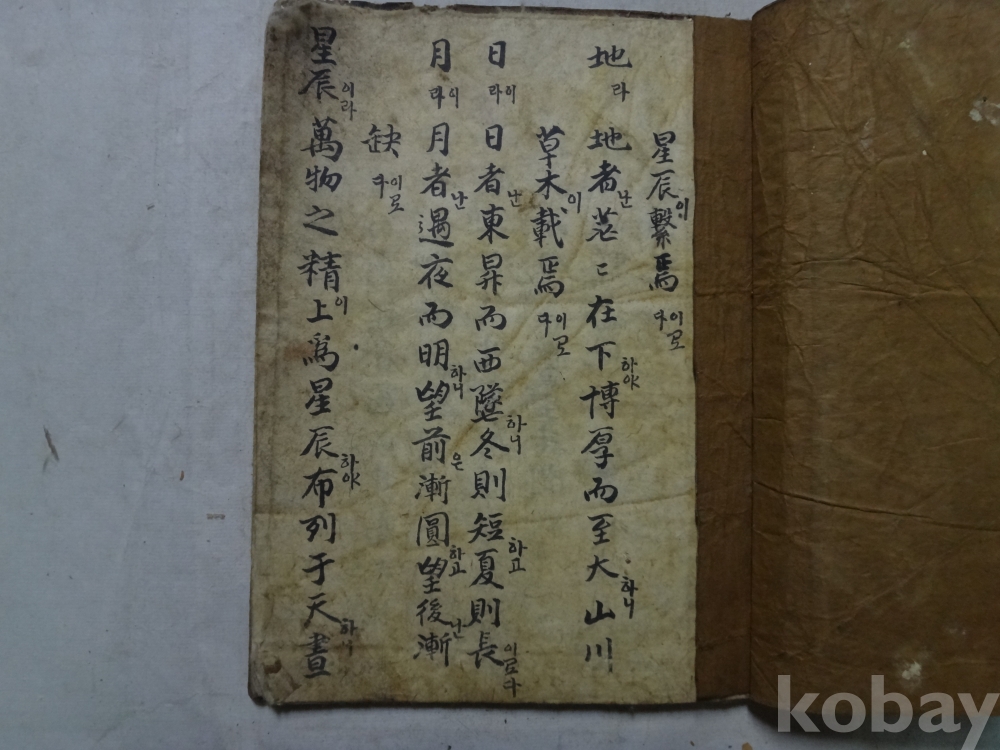 星辰이繫焉이로다
地라 地者난茫〻在下하야博厚而至大하니山川
草木이載焉이로다
日이라 日者난東昇而西墜하니冬則短하고夏則長이로다
月이라 月者난遇夜而明하니望前은漸圓하고望後난漸
缺이로다
星辰이라 萬物之精이上爲星辰하야布列于天하니晝
kobay